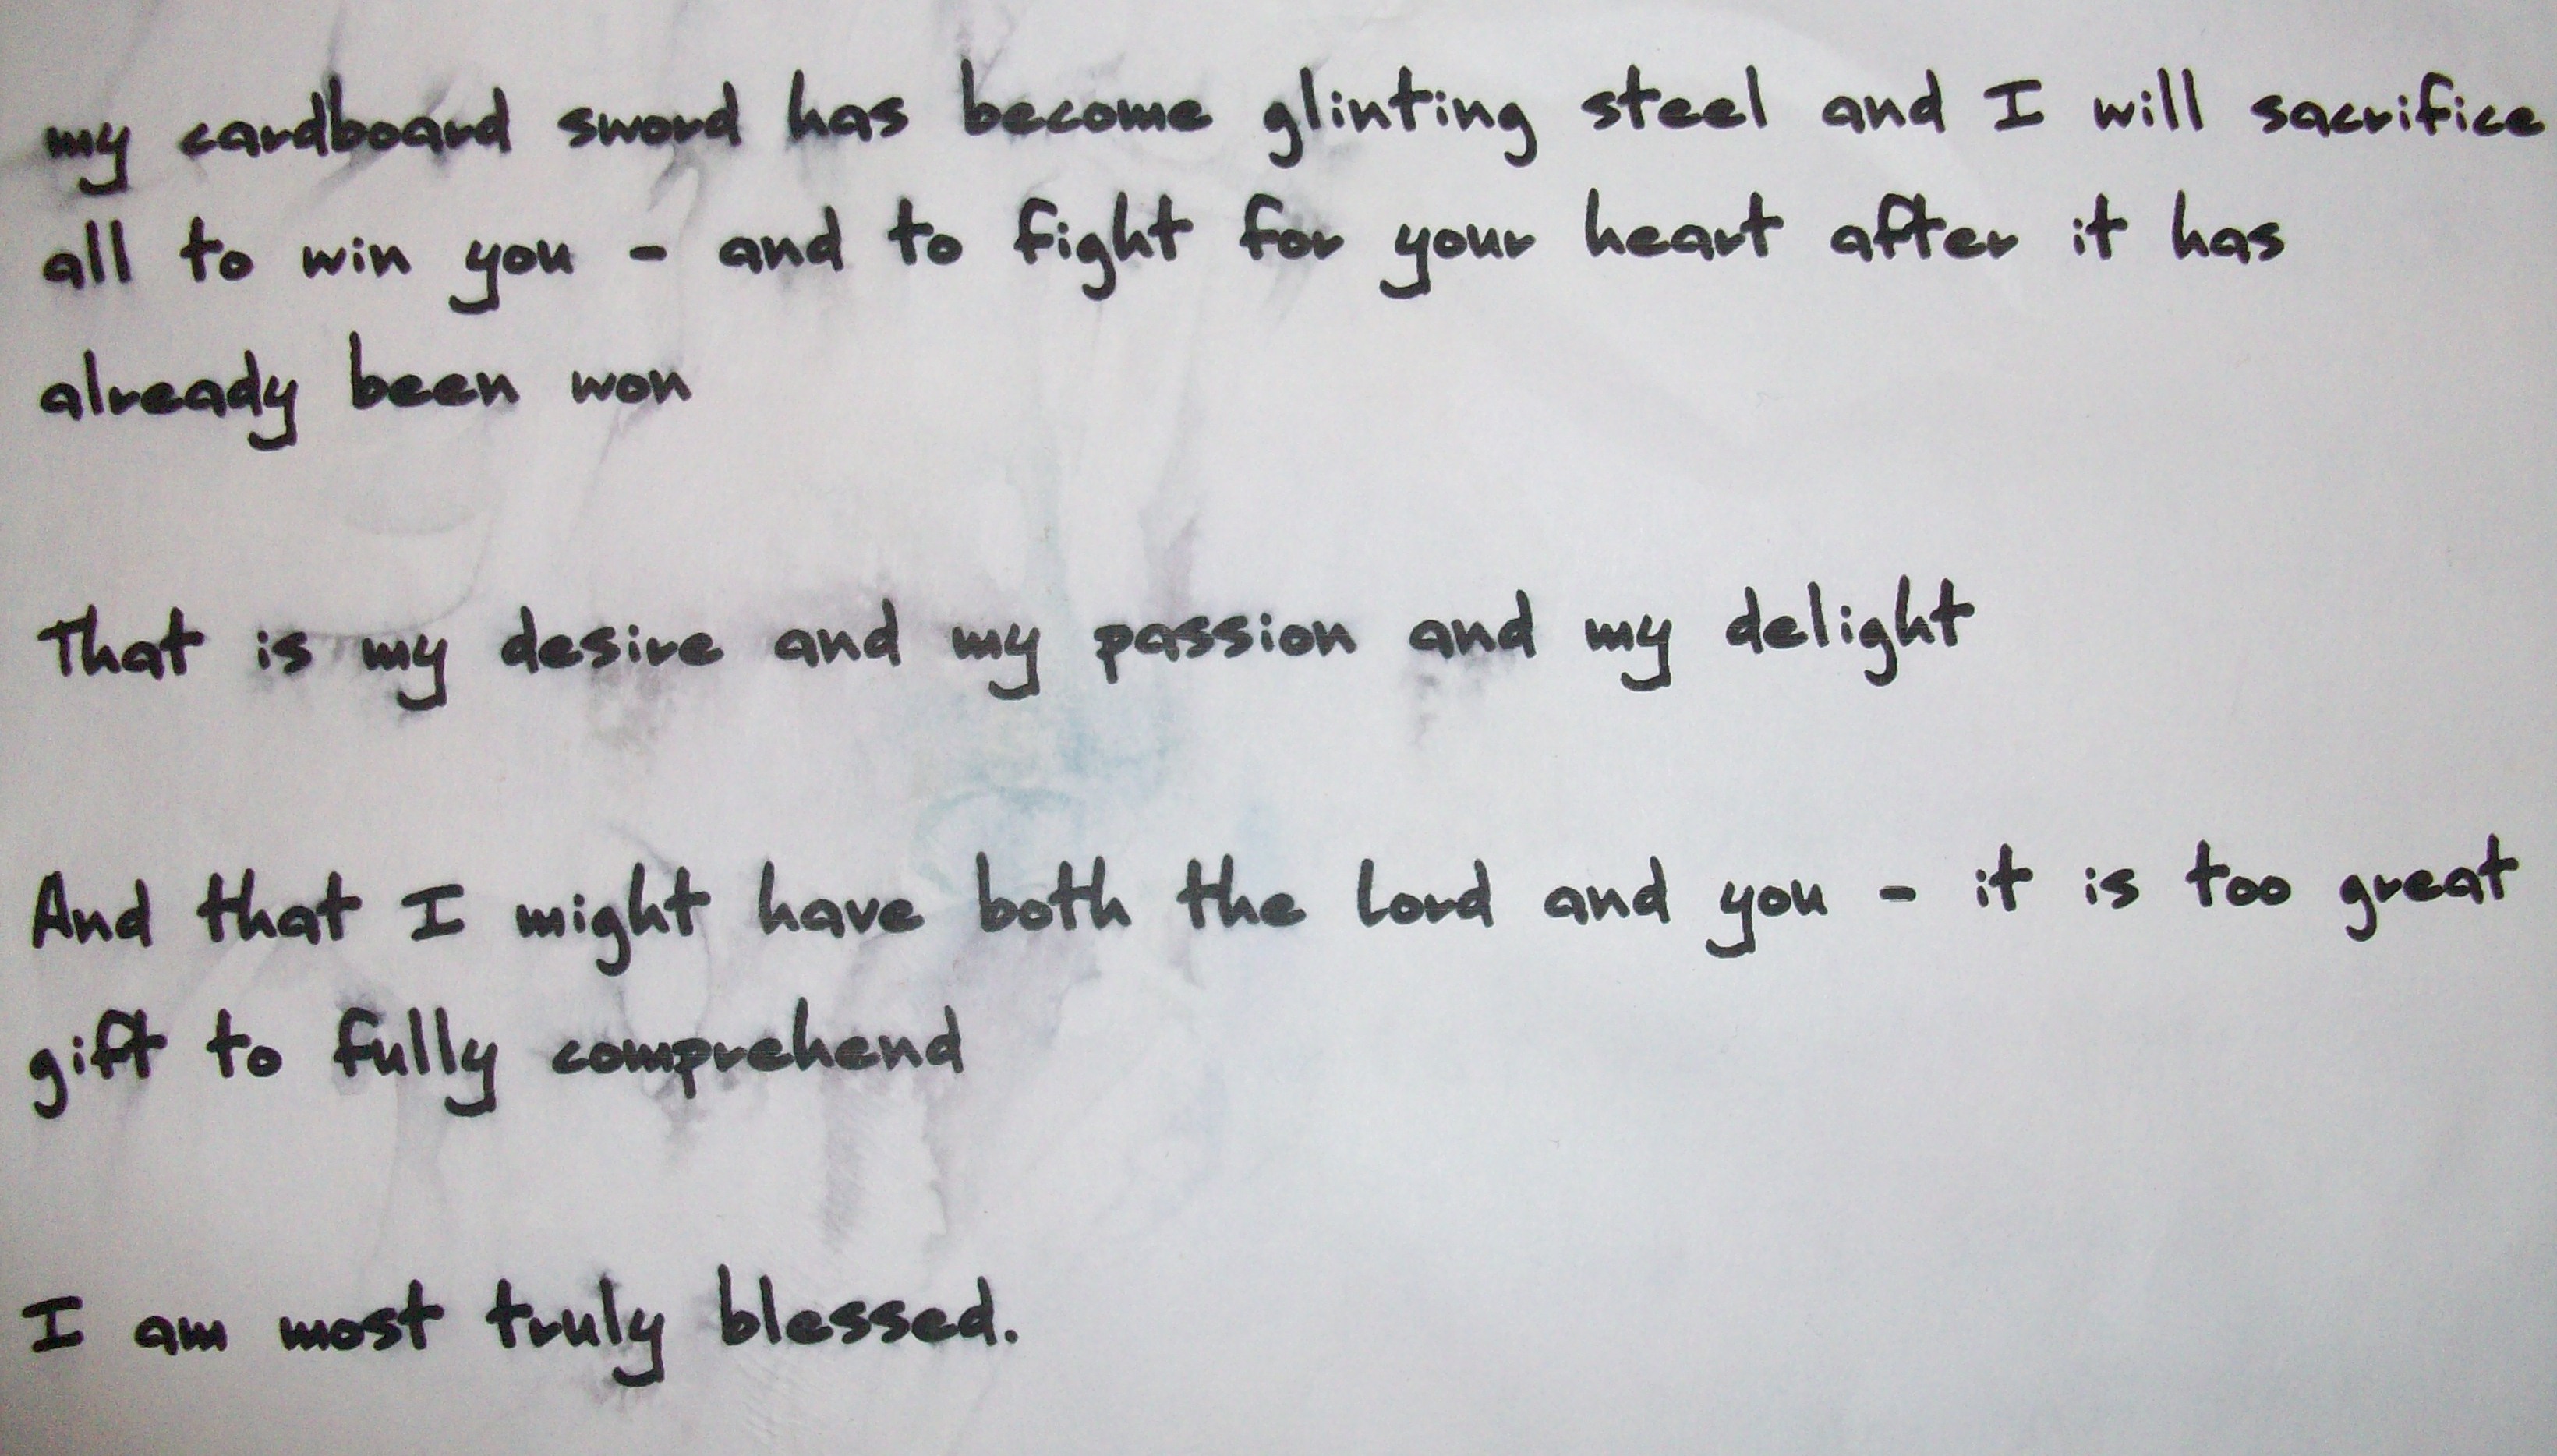 my cardboard sword has become glinting steel and I will sacrifice
all to win you - and to fight for your heart after it has
already been won
That is my desire and my passion and my delight
And that I might have both the lord and you - it is too great
gift to fully comprehend
I am most truly blessed.